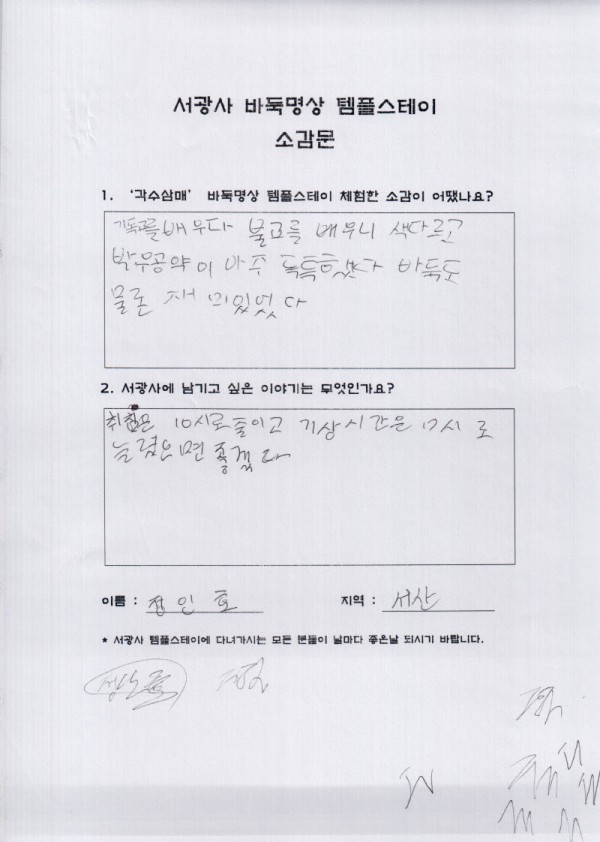 서광사 바둑명상 템플스테이
소감문
1. '각수삼매' 바둑명상 템플스테이 체험한 소감이 어땠나요?
기독교를 배우다 불교를 배우니 색다르고
이 아주 독특했다 바둑도
물론 재미있었다
2. 서광사에 남기고 싶은 이야기는 무엇인가요?
취침은 10시로 줄이고 기상시간은 시로
늘렸으면 좋겠다
이름 : 정인호
지역 : 서산
* 서광사 템플스테이에 다녀가시는 모든 분들이 날마다 좋은날 되시기 바랍니다.